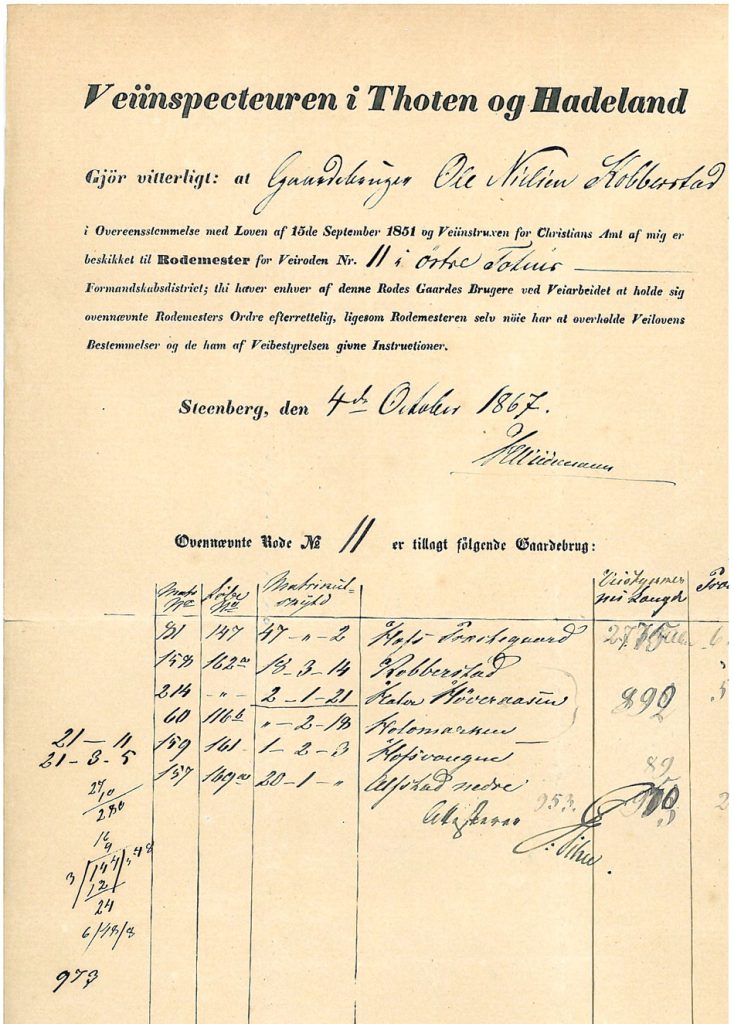 Veiinspecteuren i Thoten og Hadeland
Gjör vitterligt: at Gaardebruger Ole Nielsen Kobberstad
i Overeensstemmelse med Loven af 15de September 1851 og Veiinstruxen for Christians Amt af mig er
beskikket til Rodemester for Veiroden Nr. 11 i östre Tothns
Formandskabsdistrict; thi hæver enhver af denne Rodes Gaardes Brugere ved Veiarbeidet at holde sig
ovennævnte Rodemesters Ordre efterrettelig, ligesom Rodemesteren selv nöie har at overholde Veilovens
Bestemmelser og de ham af Veibestyrelsen givne Instructioner.
Steenberg, den 4de October 1867.
Ovennævnte Rode No 11 er tillagt følgende Gaardebrug:
Matr No Löbe No Matrikul-skyld
81 147 47 - " - 2 Hofs Præstegaard
158 162a 18 - 3 - 14 Kobberstad
214 - " - 2 - 1 - 21 Høveraasen 890
60 116b " - 2 - 18 Kolomarken
21 - 11
159 161 1 - 2 - 3 Hofsvangen
21 - 3 - 5
157 169a 20 - 1 - " Alfstad nedre 89
953
280
16
9
3 144 48
12
24
6/48/8
973